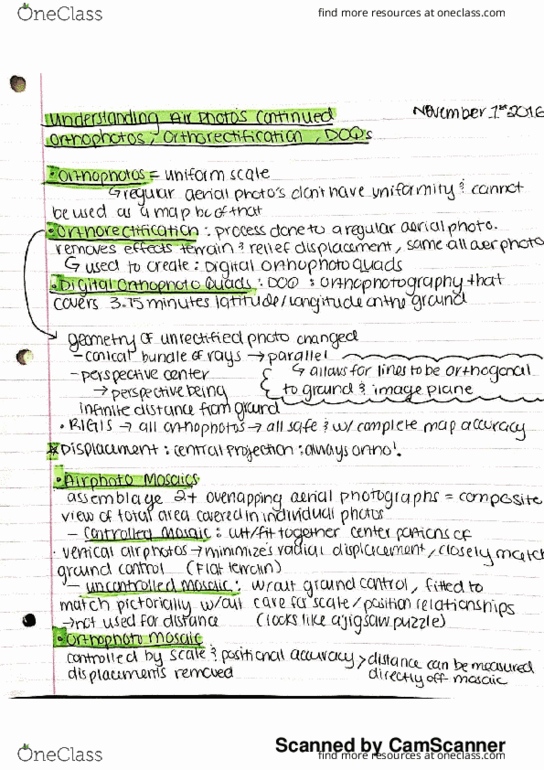 OneClass
find more resources at oneclass.com
Understanding Air Photos Continued
November 1st 2016
Orthophotos, Orthorectification, DOQs
• Orthophotos = uniform scale
↳ regular aerial photo's don't have uniformity & cannot
be used as a map bc of that
• Orthorectification : process done to a regular aerial photo.
removes effects terrain & relief displacement, same all aer photo
↳ used to create : Digital Orthophoto Quads
• Digital Orthophoto Quads : DOQ : orthophotography that
covers 3.75 minutes latitude/longitude on the ground
geometry of unrectified photo changed
- conical bundle of rays → parallel
↳ allows for lines to be orthogonal
to ground & image plane
- perspective center
→ perspective being
infinite distance from ground
• → all orthophotos → all safe & w/ complete map accuracy
Displacement : central projection : always
• Airphoto Mosaics
assemblage 2+ overlapping aerial photographs = composite
view of total area covered in individual photos
- controlled Mosaic : cut/fit together center portions of
vertical airphotos → minimizes radial displacement, closely match
ground control (Flat terrain)
- uncontrolled Mosaic : w/out ground control, fitted to
match pictorially w/out care for scale/position relationships
→ not used for distance (looks like a jigsaw puzzle)
• Orthophoto Mosaic
controlled by scale & positional accuracy > distance can be measured
directly off mosaic
displacements removed
Scanned by CamScanner
OneClass
find more resources at oneclass.com